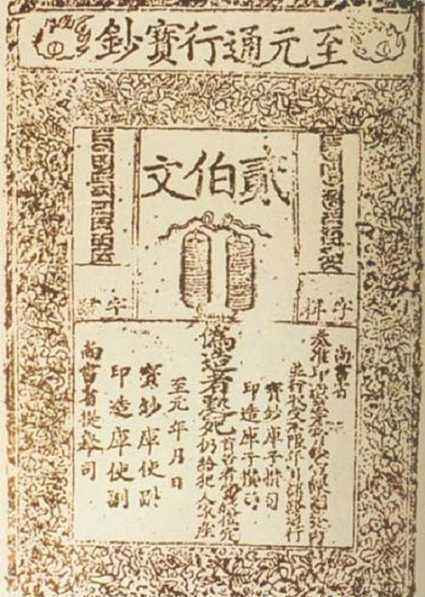 至元通行寶鈔
貳伯文
字料
字
尚書省
奏准印造至元寶鈔宣課差役內
並行收受不限年月諸路通行
寶鈔庫子攢司
印造庫子攢司
偽造者處死首告者賞銀
仍給犯人家產
至元年月日
寶鈔庫使副
印造庫使副
尚書省提舉司